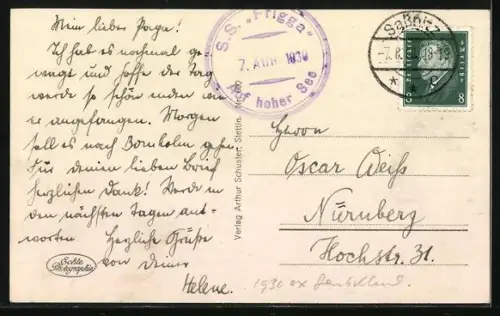 Mein lieber Papa!
Ich hab es nochmal ge-
wagt und hoffe der Tag
werde so schön enden wie
er angefangen. Morgen
soll es nach Bornholm gehen.
Für deinen lieben Brief
herzlichen Dank! Werde in
den nächsten Tagen ant-
worten. Herzliche Grüße
von deiner
Helene.
Echte
Photographie
S.S. „Frigga“
7. AUG 1930
Auf hoher See
Verlag Arthur Schuster, Stettin.
Saßnitz
DEUTSCHES REICH
8
Herrn
Oscar Weiß
Nürnberg
Hochstr. 31.
1930 ex Deutschland.